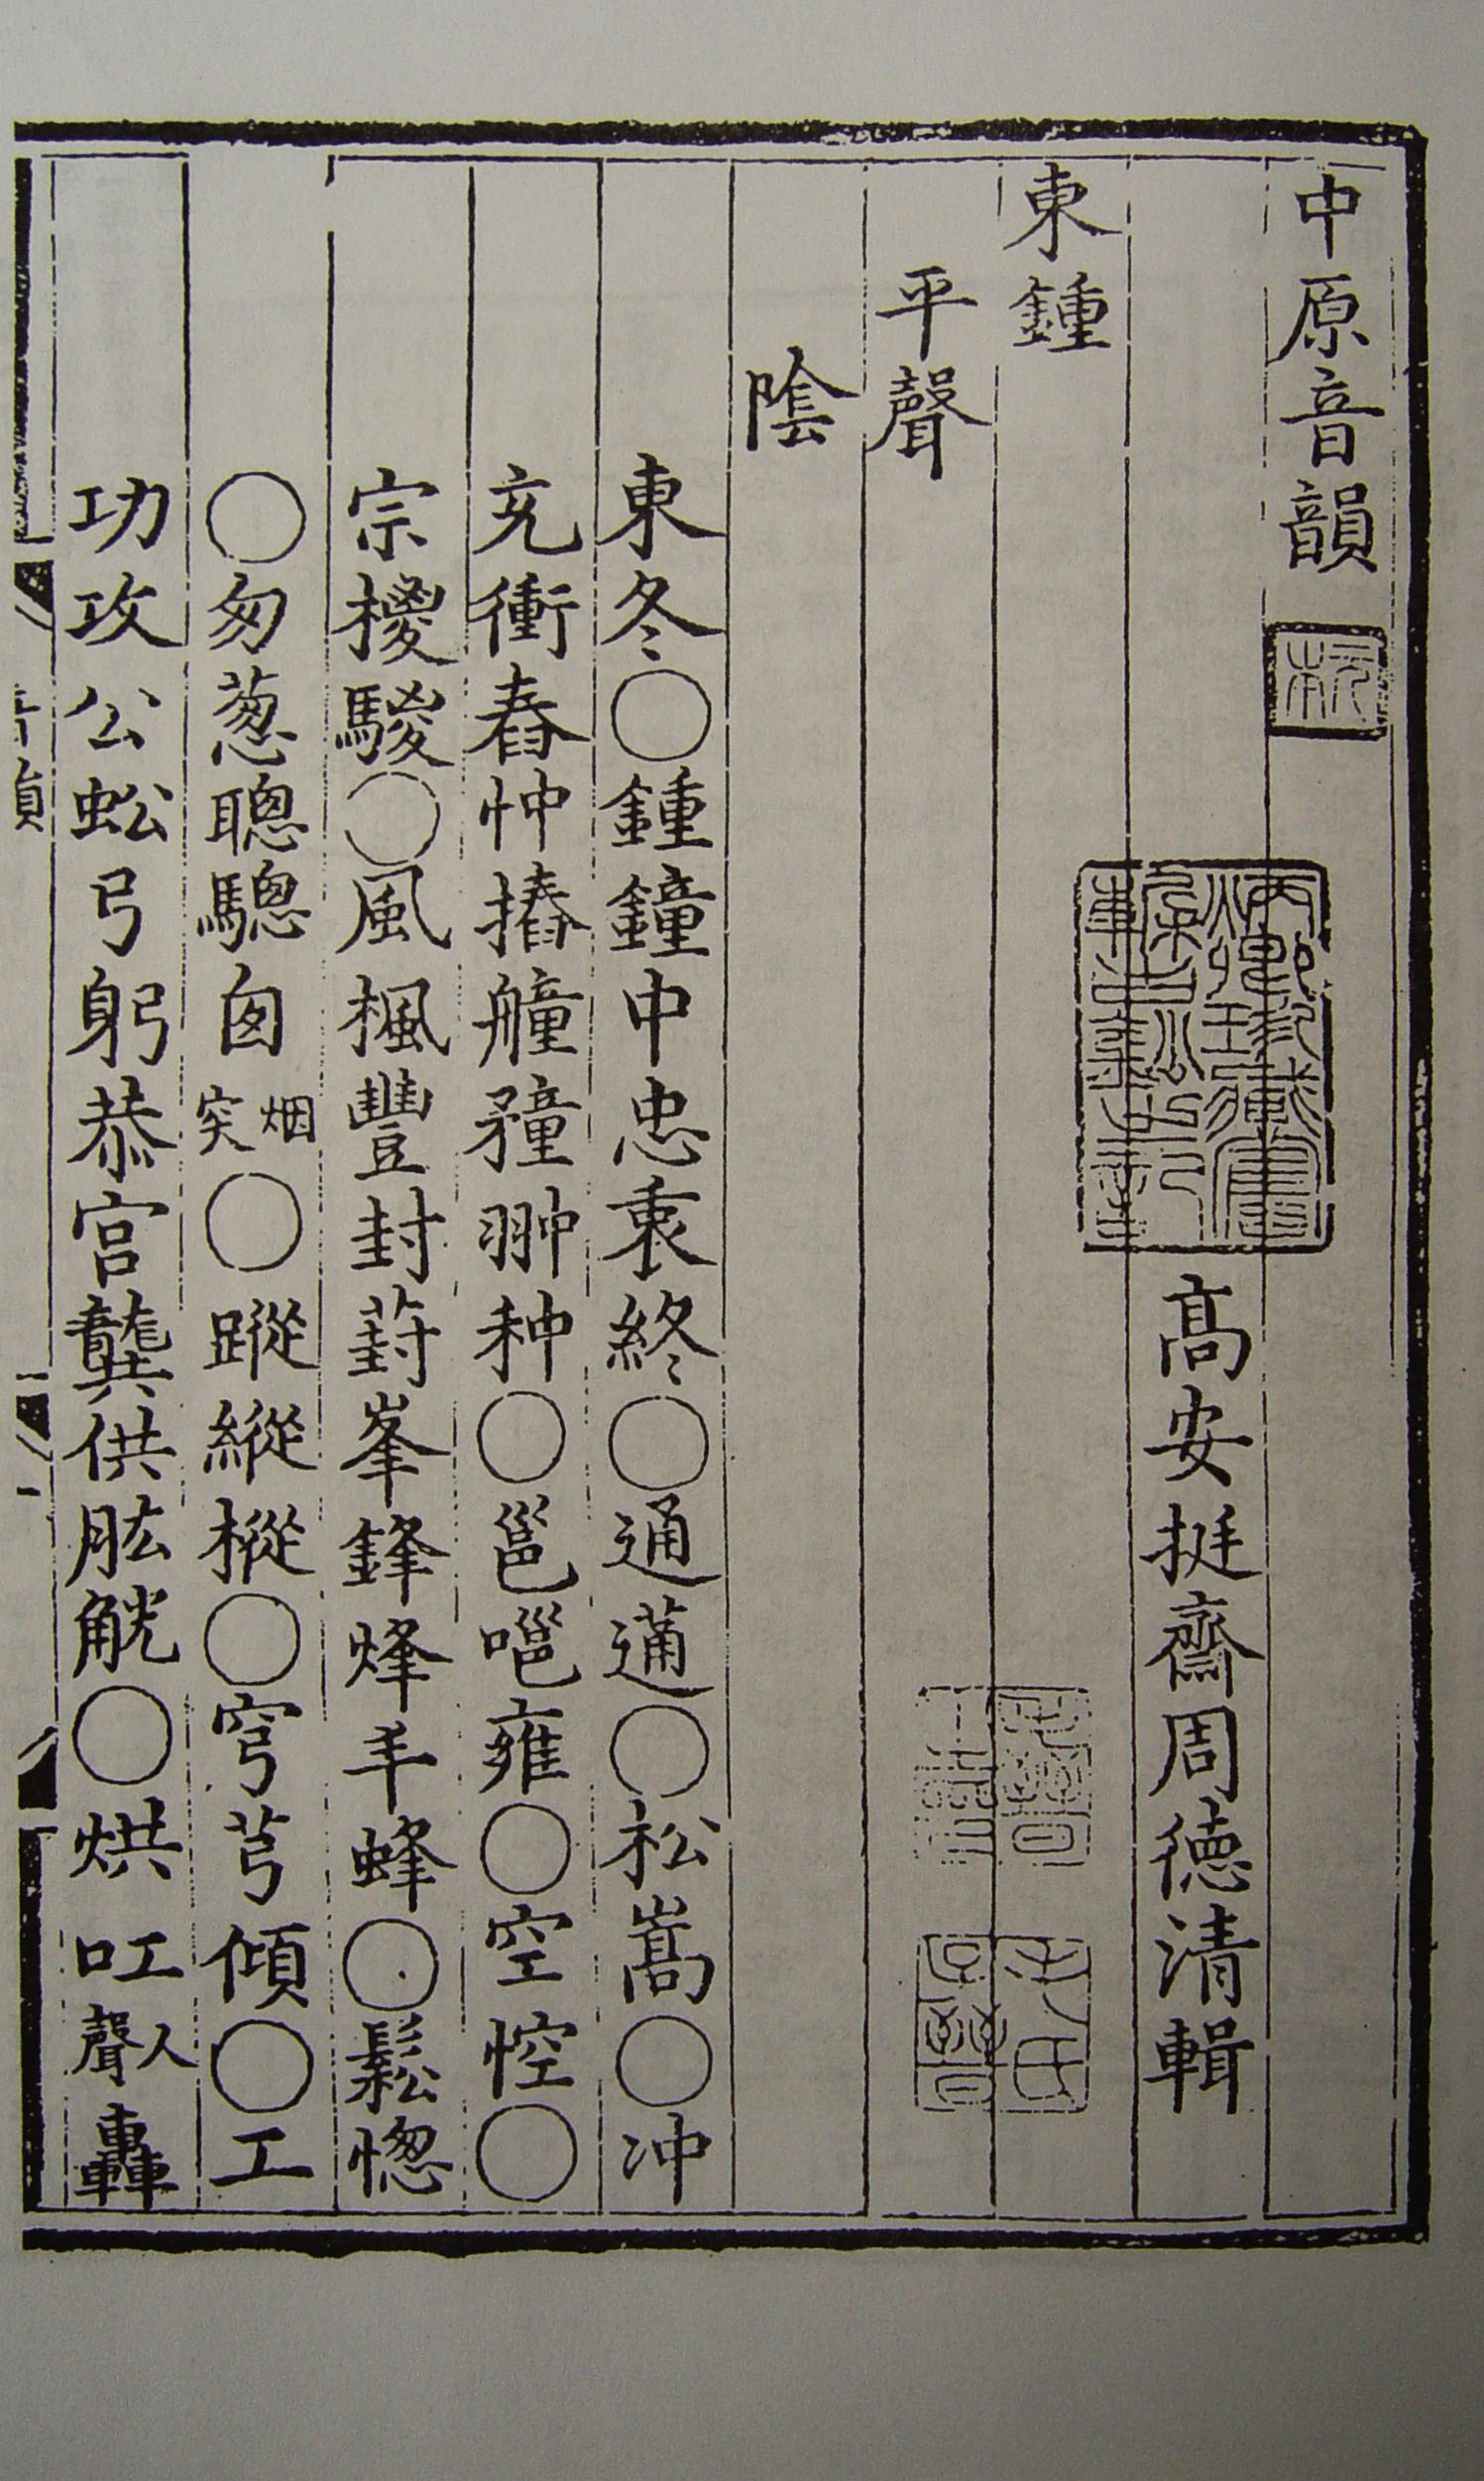 中原音韻
高安挺齋周德清輯
東鍾
平聲
陰
東冬○鍾鐘中忠衷終○通蓪○松嵩○冲
充衝舂忡摏艟穜翀种○邕噰雍○空悾○
宗椶騣○風楓豐封葑峯鋒烽丰蜂○鬆惚
○匆葱聰驄囱烟突○蹤縱樅○穹芎傾○工
功攻公蚣弓躬恭宮龔供肱觥○烘吅人聲轟